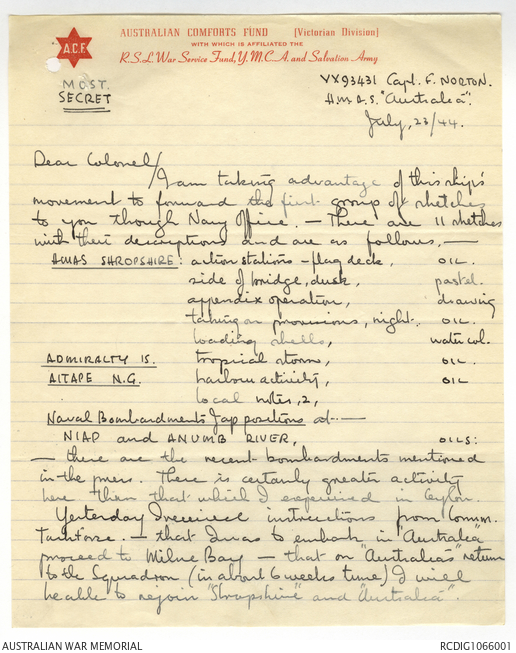 A.C.F.
AUSTRALIAN COMFORTS FUND [Victorian Division]
WITH WHICH IS AFFILIATED THE
R.S.L. War Service Fund, Y.M.C.A. and Salvation Army
MOST
SECRET
VX93431 Capt. F. NORTON.
H.M.A.S. "Australia".
July, 23/44.
Dear Colonel/
I am taking advantage of this ship's
movement to forward the first group of sketches
to you though Navy Office. — There are 11 sketches
with their descriptions and are as follows, —
HMAS SHROPSHIRE: action stations – flag deck, OIL.
side of bridge, dusk, pastel.
appendix operation, drawing
taking on provisions, night. OIL.
loading shells, water col.
ADMIRALTY IS. tropical storm, OIL.
AITAPE N.G. harbour activity, OIL
local notes, 2,
Naval Bombardments Jap positions at —
NIAP and ANUMB RIVER, OILS:
— these are the recent bombardments mentioned
in the press. There is certainly greater activity
here than that which I experienced in Ceylon.
Yesterday I received instructions from Comm.
Taskforce. — that I was to embark in "Australia"
proceed to Milne Bay — that on "Australia's" return
to the Squadron (in about 6 weeks time) I will
be able to rejoin "Shropshire" and "Australia".
AUSTRALIAN WAR MEMORIAL
RCDIG1066001